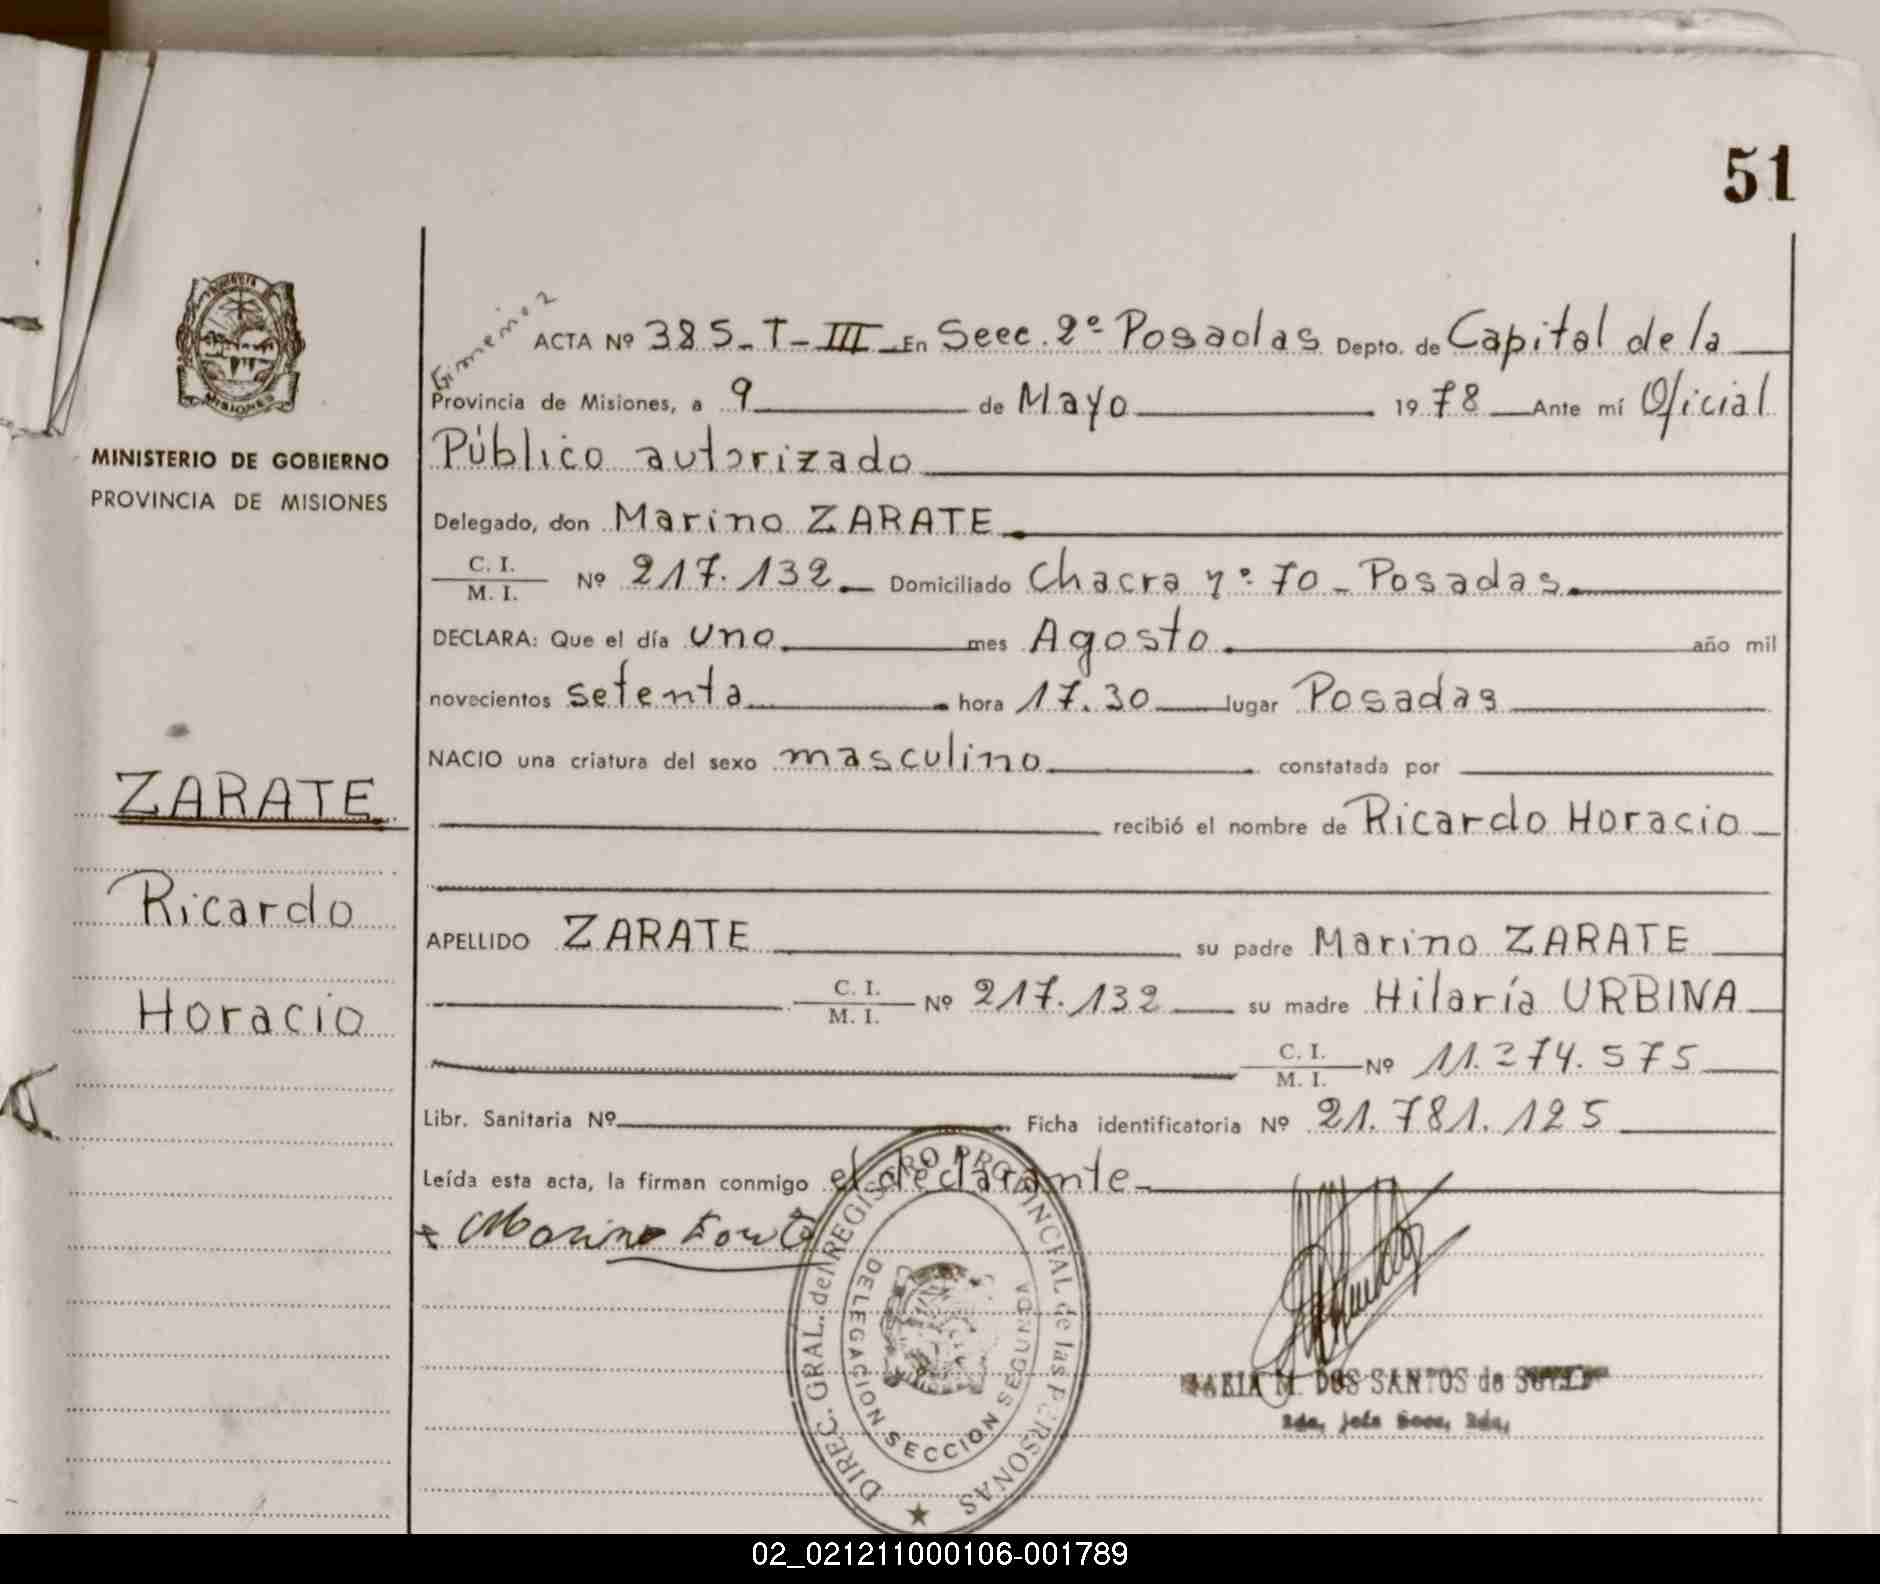 51
Gimenez
MISIONES
MINISTERIO DE GOBIERNO
PROVINCIA DE MISIONES
ZARATE
Ricardo
Horacio
ACTA Nº 385-T-III-En Secc. 2º Posadas Depto. de Capital de la
Provincia de Misiones, a 9 de Mayo 1978 Ante mí Oficial
Público autorizado
Delegado, don Marino ZARATE
C. I.
M. I. Nº 217.132 Domiciliado Chacra nº 70 - Posadas.
DECLARA: Que el día uno mes Agosto año mil
novecientos setenta hora 17.30 lugar Posadas
NACIO una criatura del sexo masculino constatada por
recibió el nombre de Ricardo Horacio
APELLIDO ZARATE su padre Marino ZARATE
C. I.
M. I. Nº 217.132 su madre Hilaría URBINA
C. I.
M. I. Nº 11.274.575
Libr. Sanitaria Nº Ficha identificatoria Nº 21.781.125
Leída esta acta, la firman conmigo el declarante
Marino
DIREC. GRAL. del REGISTRO PROVINCIAL de las PERSONAS
DELEGACION SECCION SEGUNDA
MARIA M. DOS SANTOS de
02_021211000106-001789